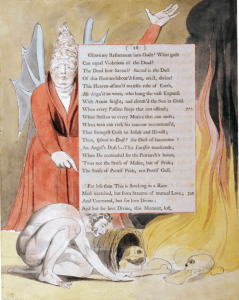 ( 16 )
Glows my Resentment into Guilt? What guilt
Can equal Violations of the Dead?
The Dead how Sacred! Sacred is the Dust
Of this Heaven-labour'd Form, erect, divine!
This Heaven-assum'd majestic robe of Earth,
He deign'd to wear, who hung the vast Expanse
With Azure bright, and cloath'd the Sun in Gold.
When every Passion Sleeps that can offend;
When Strikes us every Motive that can melt;
When man can wreak his rancour uncontroul'd,
That Strongest Curb on Insult and Ill-will;
Then, Spleen to Dust? the Dust of Innocence?
An Angel's Dust? This Lucifer transcends;
When He contended for the Patriarch's bones,
'Twas not the Strife of Malice, but of Pride;
The Strife of Pontiff Pride, not Pontiff Gall.
Far less than This is Shocking in a Race
Most wretched, but from Streams of mutual Love;
And Uncreated, but for love Divine;
And but for love Divine, this Moment, lost,